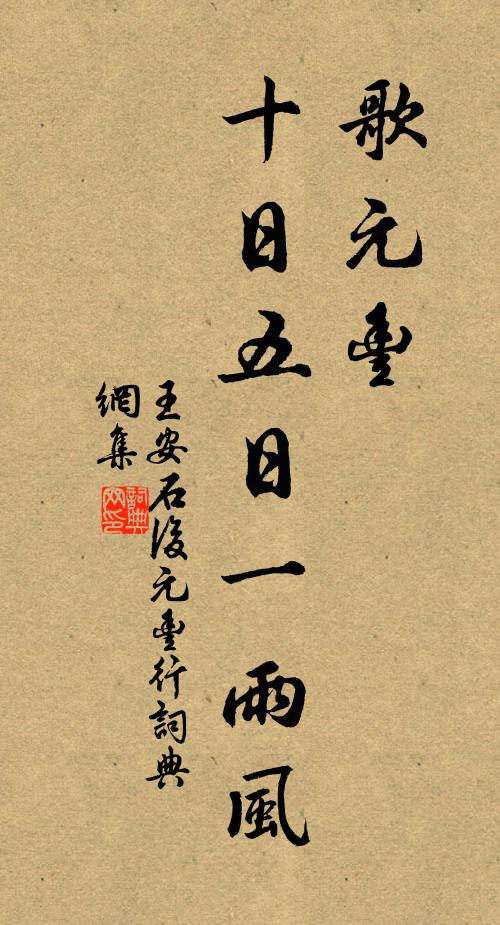 歌元豐
十日五日一雨風
王安石後元豐行詞典
網集
詞典
网印